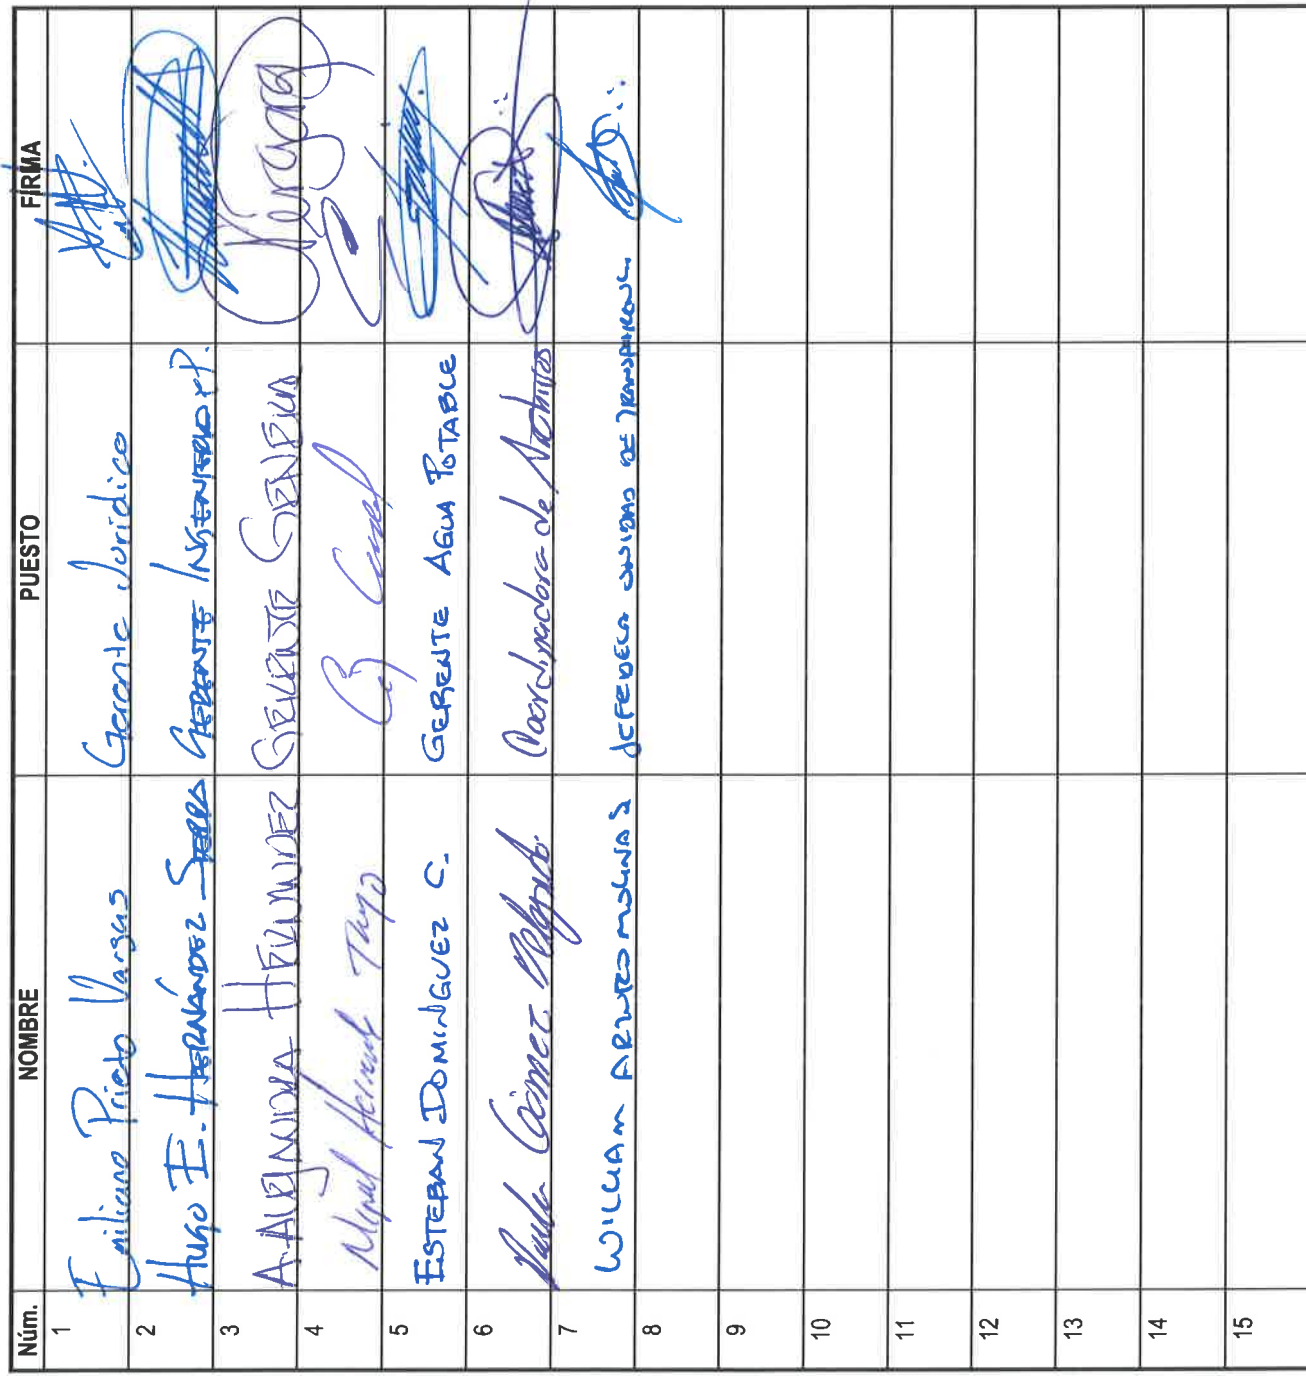 Núm. NOMBRE PUESTO FIRMA
1 Emiliano Prieto Vargas Gerente Jurídico
2 Hugo E. HERNÁNDEZ SIERRA GERENTE INGENIERIA Y P.
3 A. ALEJANDRA HERNANDEZ GERENTE GENERAL Vergara
4 Miguel Hernand
5 ESTEBAN DOMINGUEZ C. GERENTE AGUA POTABLE
6 Gómez Delgado Coordinadora de Archivos
7 WILLIAM ARTURO MOLINA S JEFE DE LA UNIDAD DE TRANSPARENCIA
8
9
10
11
12
13
14
15